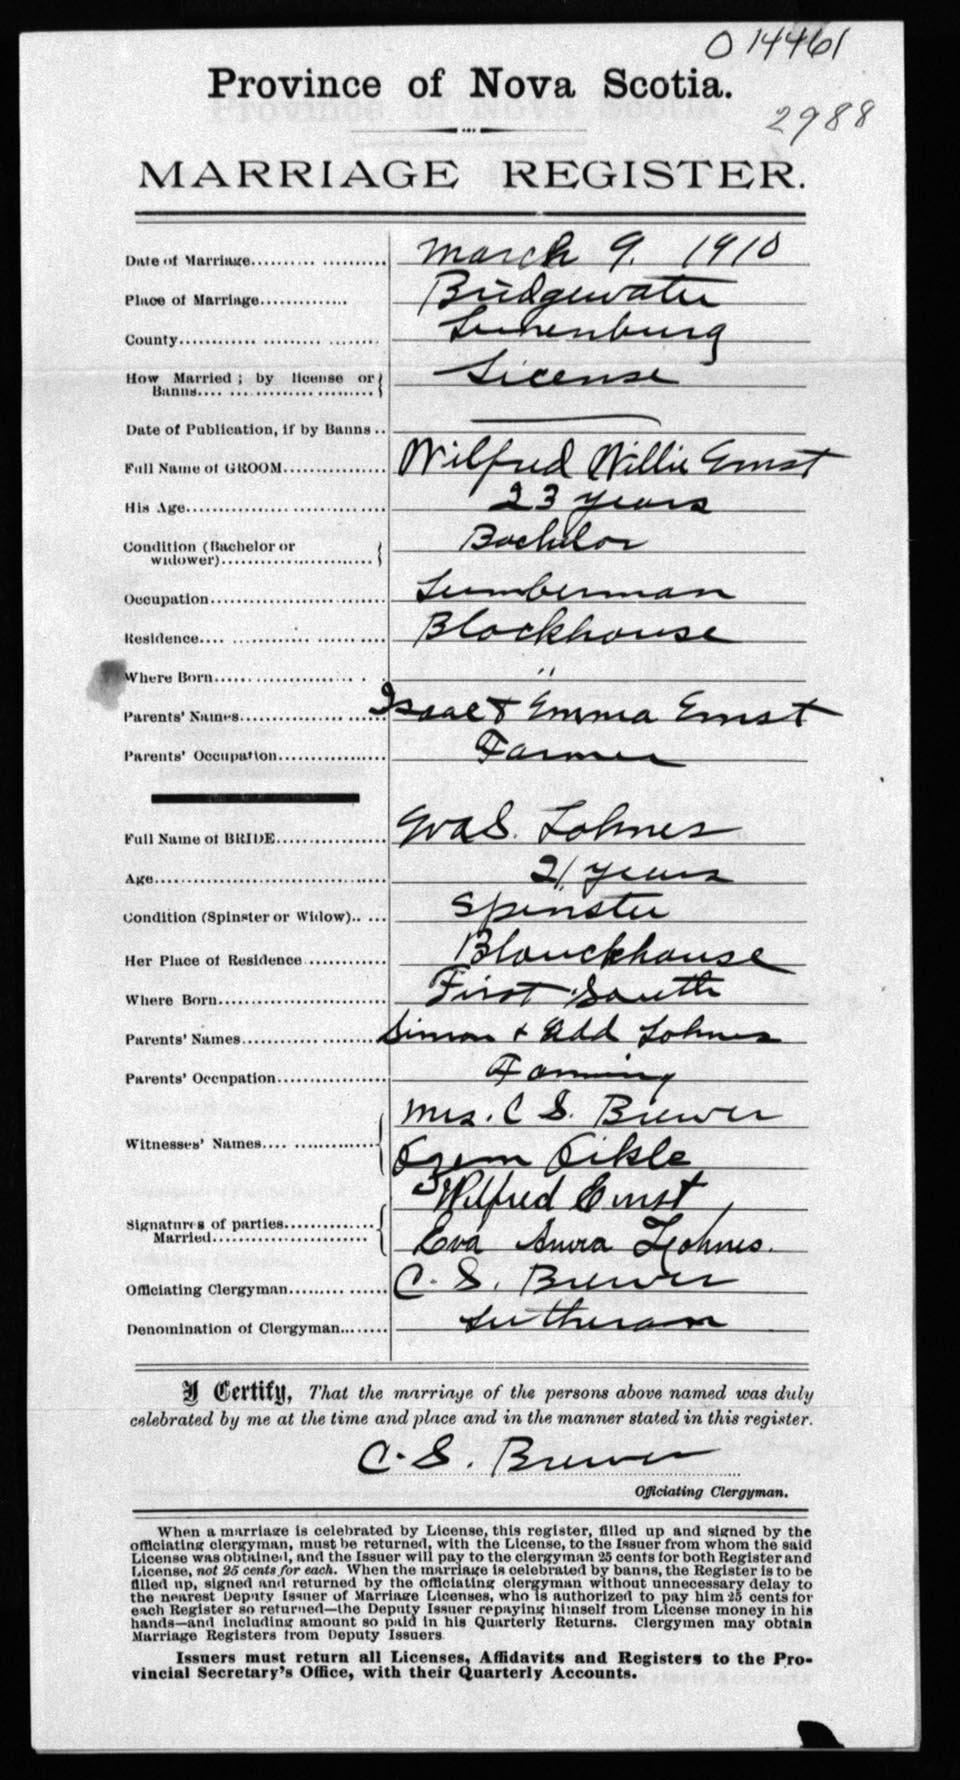 014461
Province of Nova Scotia.
2988
MARRIAGE REGISTER.
Date of Marriage.......... .......... March 9. 1910
Place of Marriage............. Bridgewater
County.......... Lunenburg
How Married; by license or Banns.......... License
Date of Publication, if by Banns .. ———
Full Name of GROOM.......... Wilfred Willie Ernst
His Age.......... 23 years
Condition (Bachelor or widower).......... Bachelor
Occupation.......... Lumberman
Residence.......... Blockhouse
Where Born.......... "
Parents' Names.......... Isaac & Emma Ernst
Parents' Occupation.......... Farmer
Full Name of BRIDE.......... Eva S. Lohnes
Age.......... 21 years
Condition (Spinster or Widow).. ... Spinster
Her Place of Residence .......... Blouckhouse
Where Born.......... First South
Parents' Names.......... Simon & Add Lohnes
Parents' Occupation.......... Farming
Witnesses' Names.......... Mrs. C S. Brewer
Ozem
Signatures of parties Married.......... Wilfred Ernst
Eva Lohnes.
Officiating Clergyman.......... C. S. Brewer
Denomination of Clergyman........ Lutheran
I Certify, That the marriage of the persons above named was duly
celebrated by me at the time and place and in the manner stated in this register.
C. S. Brewer
Officiating Clergyman.
When a marriage is celebrated by License, this register, filled up and signed by the
officiating clergyman, must be returned, with the License, to the Issuer from whom the said
License was obtained, and the Issuer will pay to the clergyman 25 cents for both Register and
License, not 25 cents for each. When the marriage is celebrated by banns, the Register is to be
filled up, signed and returned by the officiating clergyman without unnecessary delay to
the nearest Deputy Issuer of Marriage Licenses, who is authorized to pay him 25 cents for
each Register so returned—the Deputy Issuer repaying himself from License money in his
hands—and including amount so paid in his Quarterly Returns. Clergymen may obtain
Marriage Registers from Deputy Issuers
Issuers must return all Licenses, Affidavits and Registers to the Pro-
vincial Secretary's Office, with their Quarterly Accounts.